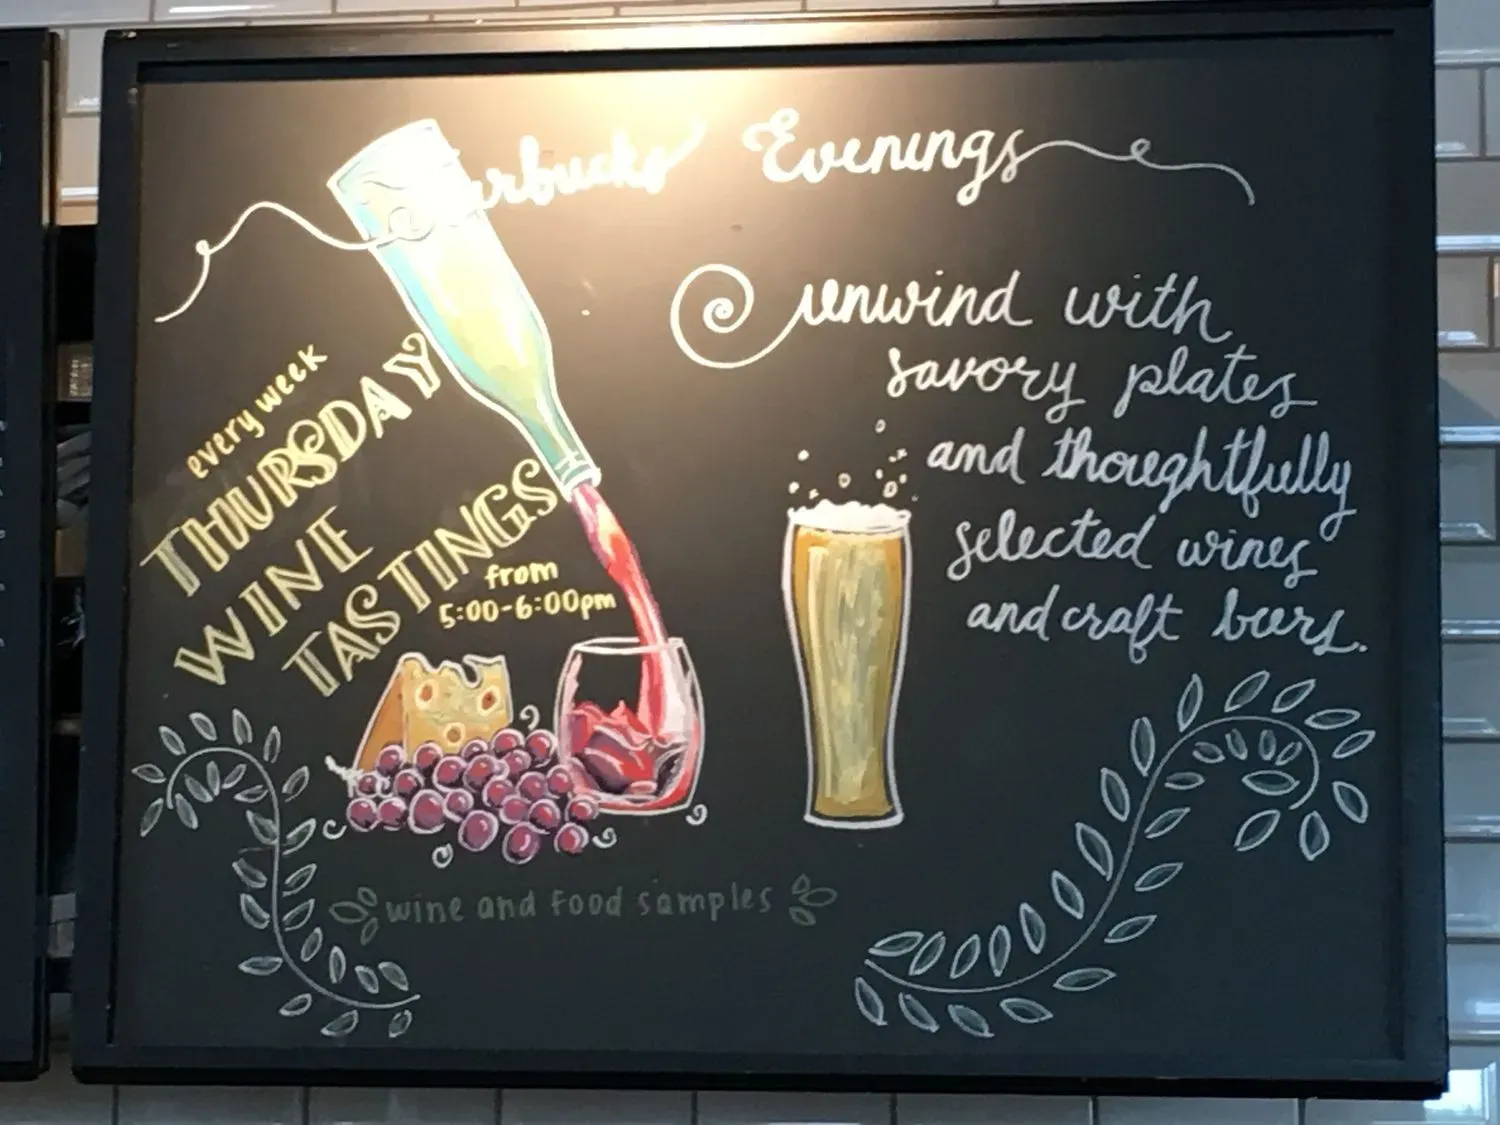 Starbucks Evenings
every week
THURSDAY
WINE
TASTINGS
from
5:00-6:00pm
wine and food samples
unwind with
savory plates
and thoughtfully
selected wines
and craft beers.